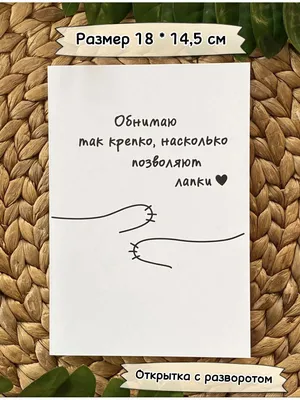 Размер 18 * 14,5 см
Обнимаю
так крепко, насколько
позволяют
лапки ♥
Открытка с разворотом